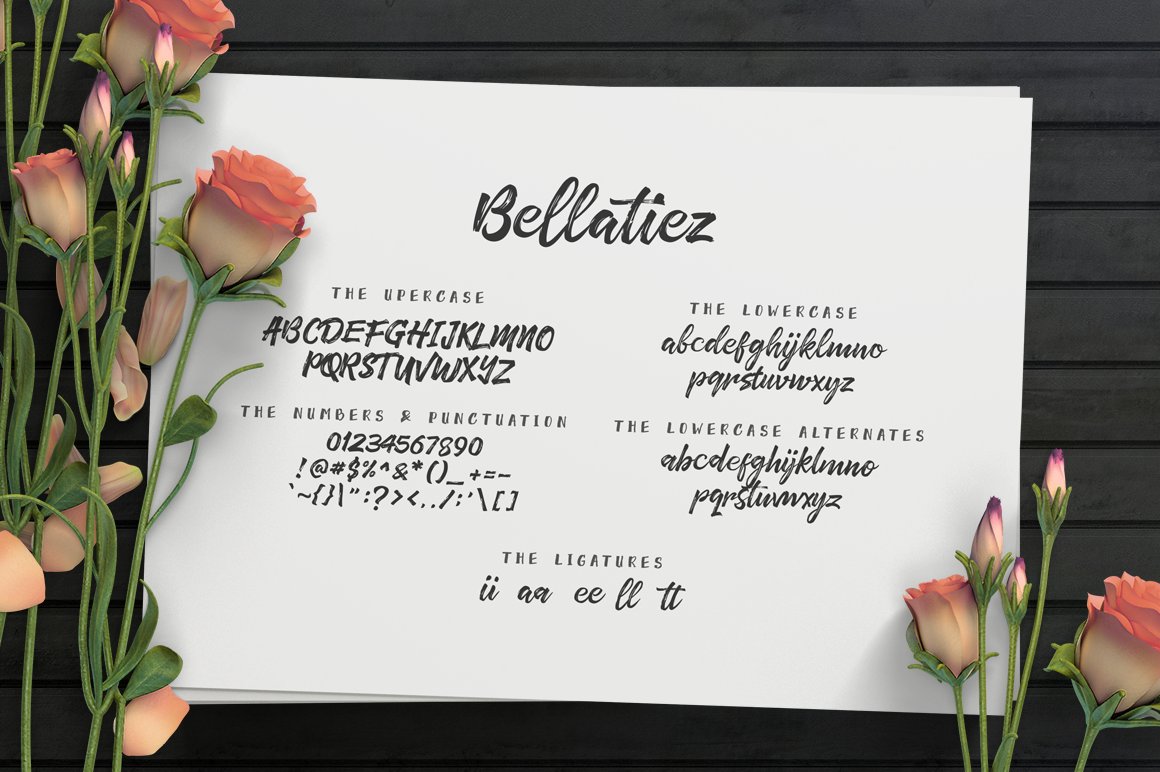 Bellatiez
THE UPERCASE
ABCDEFGHIJKLMNO
PQRSTUVWXYZ
THE LOWERCASE
abcdefghijklmno
pqrstuvwxyz
THE NUMBERS & PUNCTUATION
01234567890
!@#$%^&*()_+=-
`~{}|":?><,./;'\[]
THE LOWERCASE ALTERNATES
abcdefghijklmno
pqrstuvwxyz
THE LIGATURES
ii aa ee ll tt